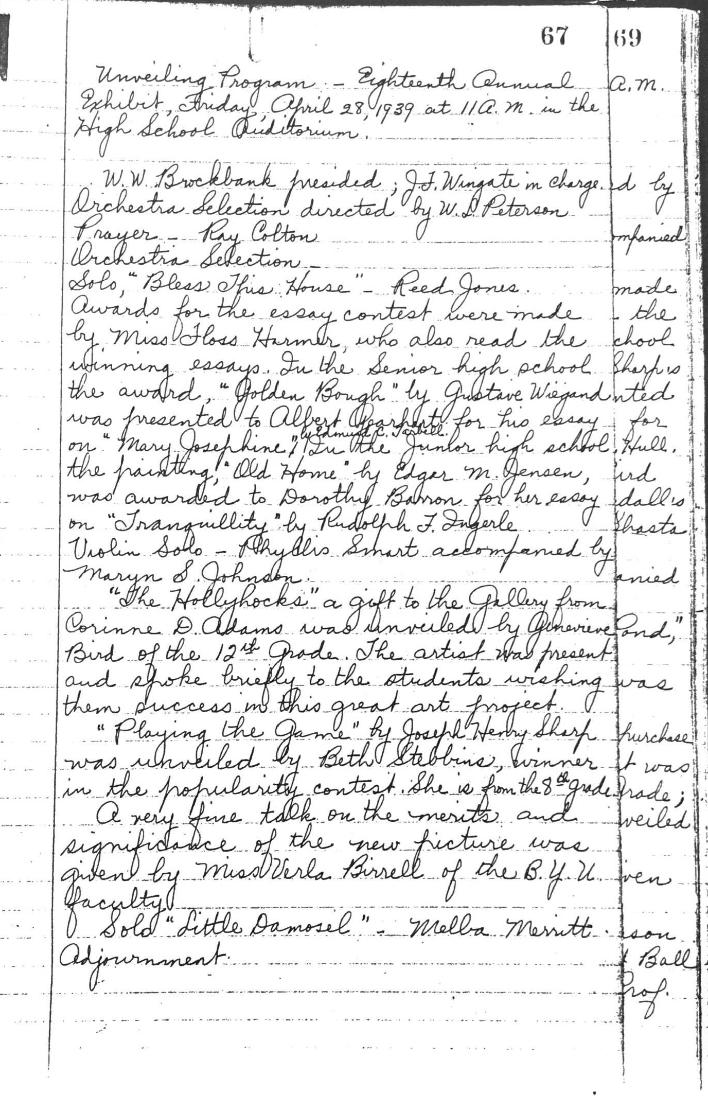 67
Unveiling Program - Eighteenth Annual
Exhibit, Friday, April 28, 1939 at 11 A.M. in the
High School Auditorium.
W.W. Brockbank presided; J.F. Wingate in charge.
Orchestra Selection directed by W. L. Peterson
Prayer - Ray Colton
Orchestra Selection -
Solo, "Bless This House" - Reed Jones.
Awards for the essay contest were made
by Miss Floss Harmer, who also read the
winning essays. In the Senior high school
the award, "Golden Bough" by Gustave Wiegand
was presented to Albert for his essay
by Edmund C. Tarbell.
on "Mary Josephine," In the Junior high school
the painting, "Old Home" by Edgar M. Jensen,
was awarded to Dorothy Barron for her essay
on "Tranquillity" by Rudolph F. Ingerle
Violin Solo - Phyllis Smart accompanied by
Maryn S. Johnson.
"The Hollyhocks" a gift to the Gallery from
Corinne D. Adams was unveiled by Genevieve
Bird of the 12th Grade. The artist was present
and spoke briefly to the students wishing
them success in this great art project.
"Playing the Game" by Joseph Henry Sharp
was unveiled by Beth Stebbins, winner
in the popularity contest. She is from the 8th grade
A very fine talk on the merits and
significance of the new picture was
given by Miss Verla Birrell of the B.Y.U.
faculty
Solo "Little Damosel" - Melba Merritt.
Adjournment.
69
A.M.
d by
mpanied
made
the
chool
Sharp is
nted
for
Hull.
ird
dall is
Shasta
anied
ond,"
was
purchase
it was
Grade;
veiled
ven
son
Ball
Prof.